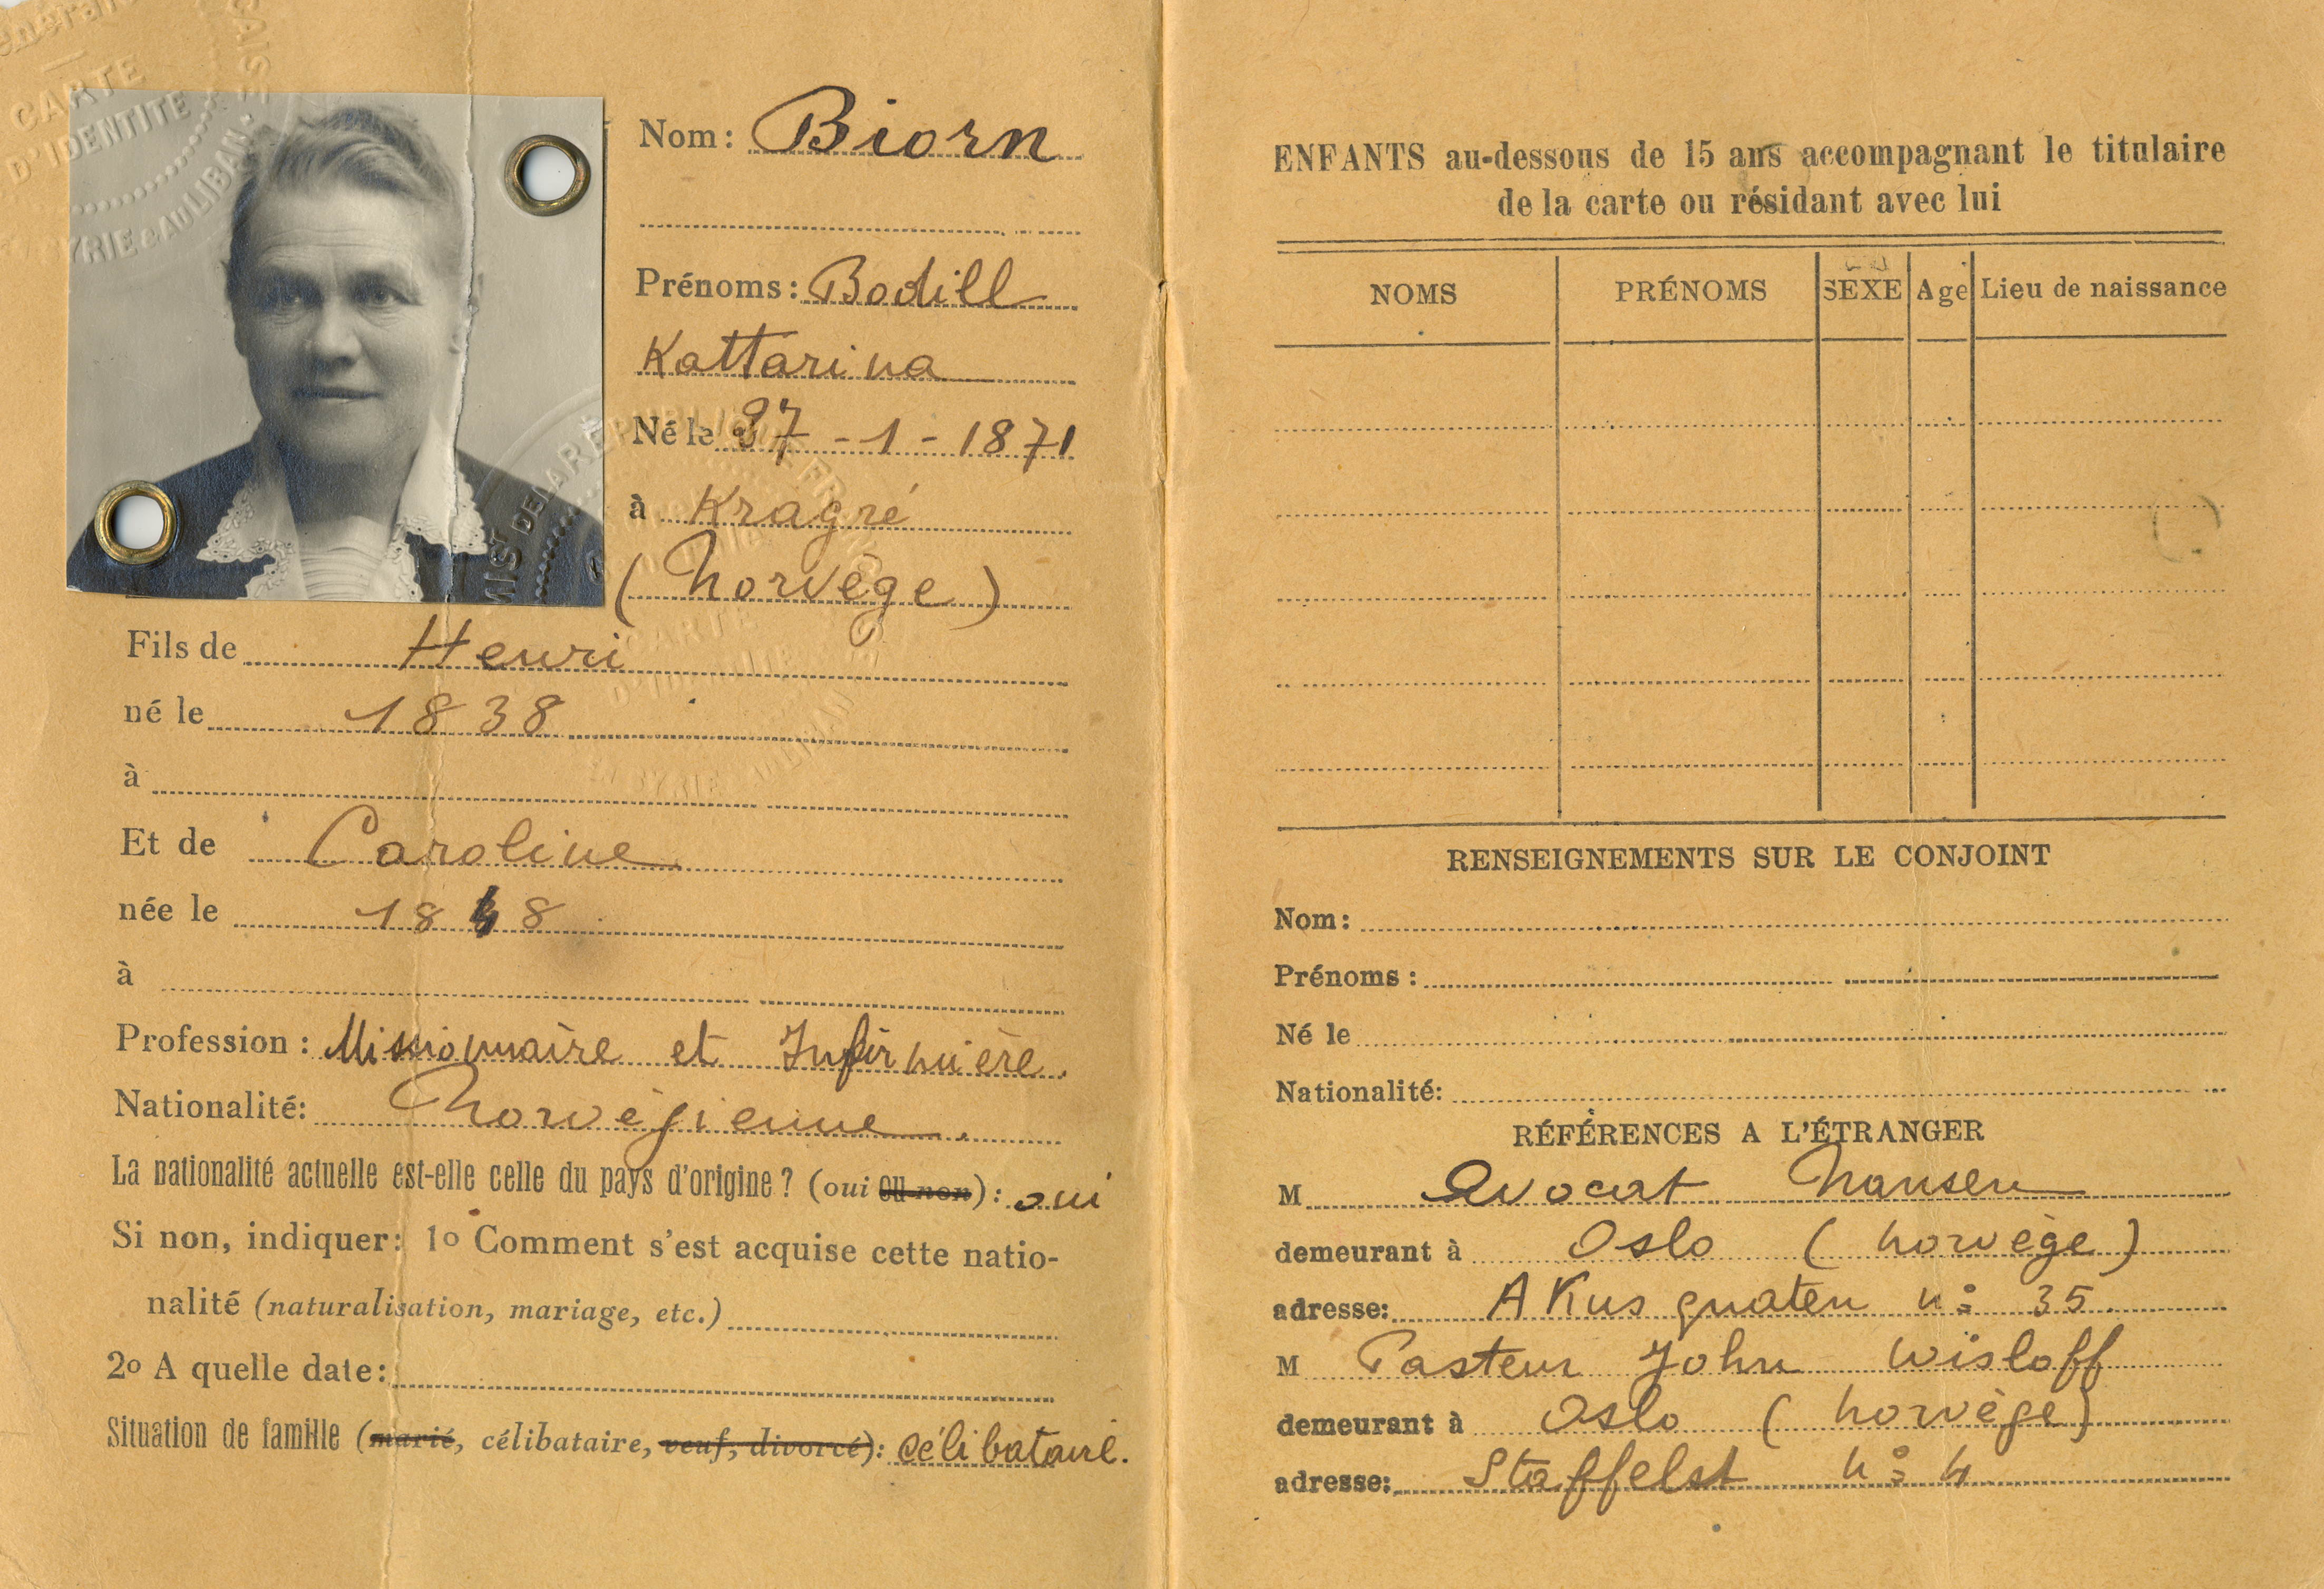 CARTE
D'IDENTITÉ
Nom: Biorn
Prénoms: Bodill
Kattarina
Né le 27 - 1 - 1871
à Kragré
(Norvège)
Fils de Henri
né le 1838
à
Et de Caroline
née le 1848
à
Profession: Missionnaire et Infirmière.
Nationalité: Norvégienne.
La nationalité actuelle est-elle celle du pays d'origine? (oui ou non): oui
Si non, indiquer: 1o Comment s'est acquise cette natio-
nalité (naturalisation, mariage, etc.)
2o A quelle date:
Situation de famille (marié, célibataire, veuf, divorcé): célibataire.
ENFANTS au-dessous de 15 ans accompagnant le titulaire
de la carte ou résidant avec lui
NOMS PRÉNOMS SEXE Age Lieu de naissance
RENSEIGNEMENTS SUR LE CONJOINT
Nom:
Prénoms:
Né le
Nationalité:
RÉFÉRENCES A L'ÉTRANGER
M Avocat Nansen
demeurant à Oslo (Norvège)
adresse: AKus gnaten no 35.
M Pasteur John Wisloff
demeurant à Oslo (Norvège)
adresse: Staffelst no 4